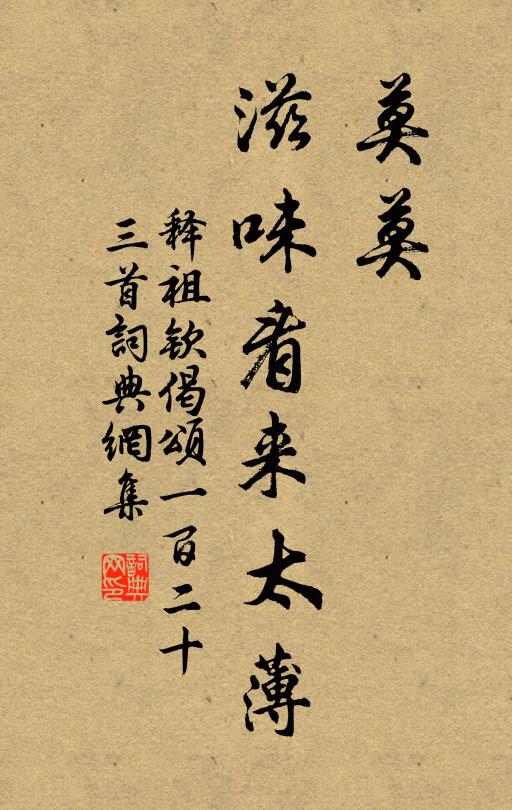 莫莫
滋味看来太薄
释祖钦偈颂一百二十
三首詞典網集
詞典
网印